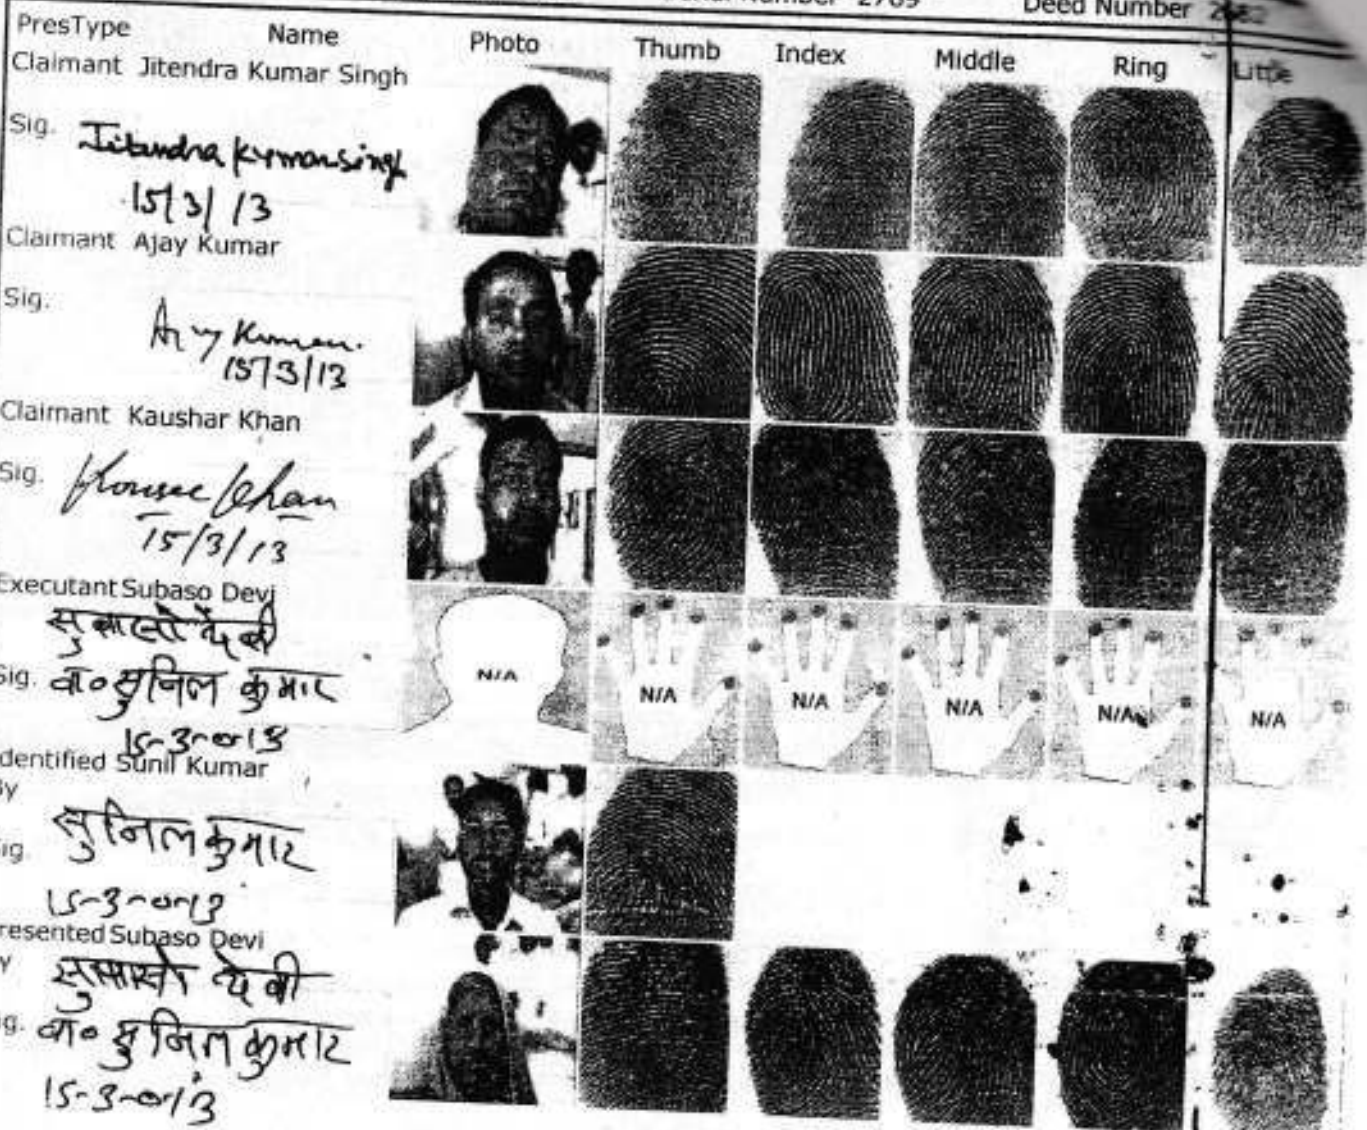 Serial Number 2709 Deed Number 2682
PresType Name Photo Thumb Index Middle Ring Little
Claimant Jitendra Kumar Singh
Sig. Jitendra Kumar Singh
15/3/13
Claimant Ajay Kumar
Sig. Ajay Kumar
15/3/13
Claimant Kaushar Khan
Sig. Khan
15/3/13
Executant Subaso Devi
सुबासो देवी
Sig. वा० सुनिल कुमार
N/A N/A N/A N/A N/A N/A
15-3-013
dentified Sunil Kumar
By
सुनिल कुमार
Sig.
15-3-013
resented Subaso Devi
y
सुबासो देवी
ig. वा० सुनिल कुमार
15-3-013